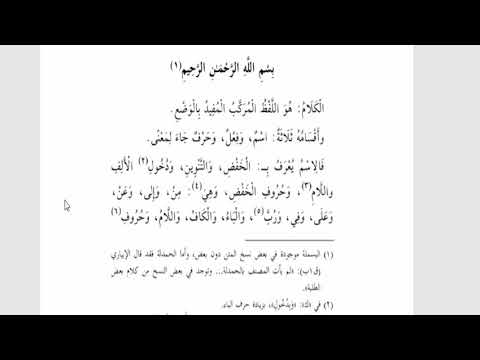 بِسْمِ اللَّهِ الرَّحْمَـٰنِ الرَّحِيمِ(١)
الْكَلَامُ: هُوَ اللَّفْظُ الْمُرَكَّبُ الْمُفِيدُ بِالْوَضْعِ.
وَأَقْسَامُهُ ثَلَاثَةٌ: اسْمٌ، وَفِعْلٌ، وَحَرْفٌ جَاءَ لِمَعْنًى.
فَالِاسْمُ يُعْرَفُ بِــ: الْخَفْضِ، وَالتَّنْوِينِ، وَدُخُولِ(٢) الْأَلِفِ
وَاللَّامِ(٣)، وَحُرُوفِ الْخَفْضِ، وَهِيَ(٤): مِنْ، وَإِلَى، وَعَنْ،
وَعَلَى، وَفِي، وَرُبَّ(٥)، وَالْبَاءُ، وَالْكَافُ، وَاللَّامُ، وَحُرُوفِ(٦)
(١) البسملة موجودة في بعض نسخ المتن دون بعض، وأما الحمدلة فقد قال الإبياري
(ق١ب): «لم يأت المصنف بالحمدلة... وتوجد في بعض النسخ من كلام بعض
الطلبة».
(٢) في «ك»: «وبدخول»، بزيادة حرف الباء.